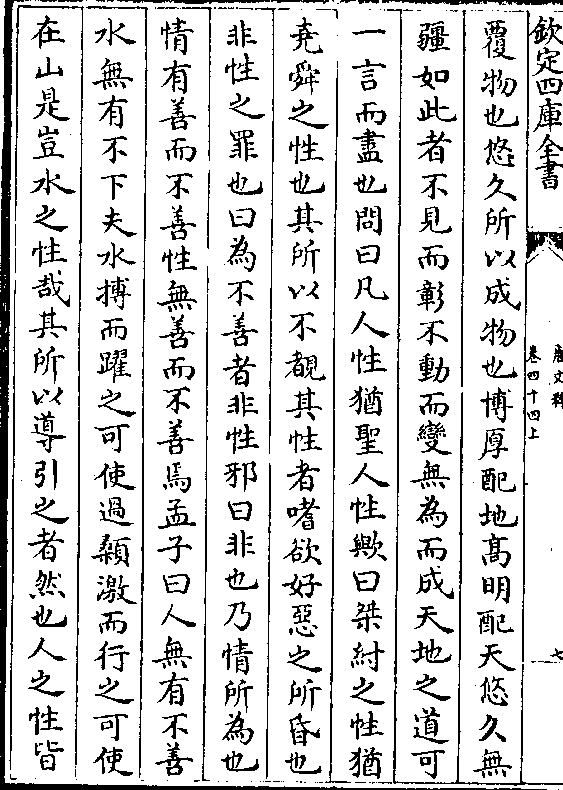 欽定四庫全書
唐文粹
卷四十四上
七
覆物也悠久所以成物也博厚配地髙明配天悠久無
疆如此者不見而彰不動而變無為而成天地之道可
一言而盡也問曰凡人性猶聖人性歟曰桀紂之性猶
尭舜之性也其所以不覩其性者嗜欲好惡之所昏也
非性之罪也曰為不善者非性邪曰非也乃情所為也
情有善而不善性無善而不善焉孟子曰人無有不善
水無有不下夫水搏而躍之可使過顙激而行之可使
在山是豈水之性哉其所以導引之者然也人之性皆